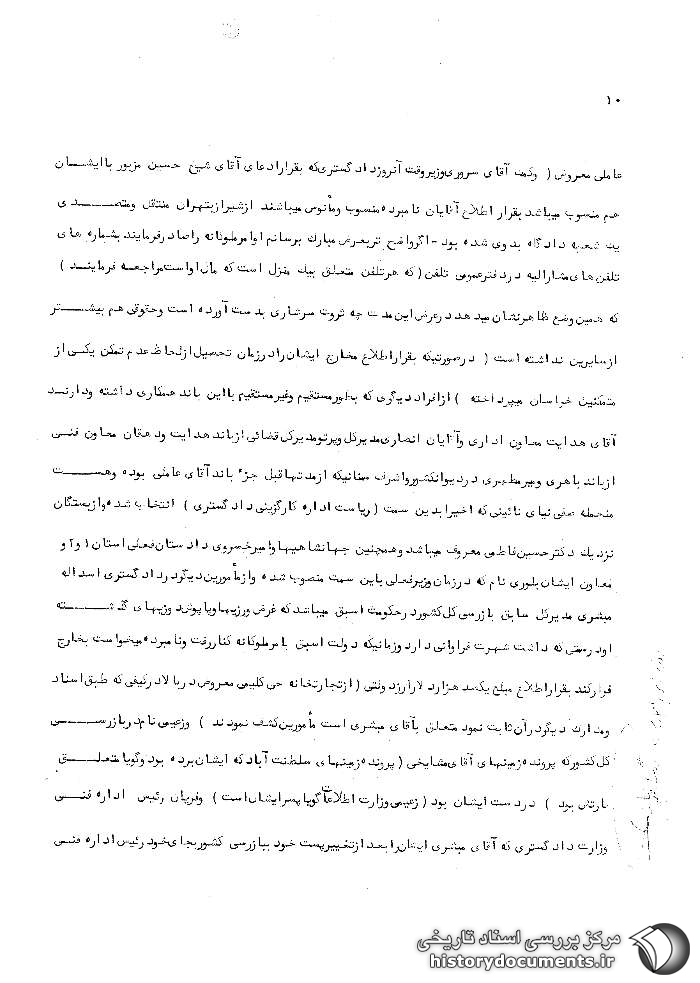 ۱۰
عاملی معروض ( وکمت آقای سروری وزیر وقت آنروز دادگستری که بقرار ادعای آقای شیخ حسین مزبور با ایشان
هم منسوب میباشد بقرار اطلاع آقایان نامبرده منسوب ومأنوس میباشند ازشیراز بتهران منتقل ومتصدی
یک شعبه دادگاه بدوی شده بود - اگرواضح تربعرض مبارک برسانم اوامر ملوکانه راصادر فرمایند بشماره های
تلفن های مشارالیه دردفترعمومی تلفن ( که هرتلفن متعلق بیک منزل است که مال اواست مراجعه فرمایند )
که همین وضع ظاهرنشان میدهد درعرض این مدت چه ثروت سرشاری بدست آورده است وحقوقی هم بیشتر
ازسایرین نداشته است ( درصورتیکه بقراراطلاع مخارج ایشان رادرزمان تحصیل ازلحاظ عدم تمکن یکی از
متمکنین خراسان میپرداخته ) ازافراد دیگری که بطورمستقیم وغیرمستقیم بااین باند همکاری داشته ودارند
آقای هدایت معاون اداری وآقایان انصاری مدیرکل وپرتومدیرکل قضائی ازباند هدایت ودهقان معاون فنی
ازباند باهری ومیرمطهری دردیوانکشورواشرف سمنانیکه ازمدتهاقبل جزء باند آقای عاملی بوده وهست
منجمله صفی نیای نائینی که اخیرابدین سمت ( ریاست اداره کارگزینی دادگستری ) انتخاب شده وازبستگان
نزدیک دکترحسین فاطمی معروف میباشد وهمچنین جهانشاهیها وامیرخسروی دادستان فعلی استان ۱و۲ و
معاون ایشان بلوری نام که درزمان وزیرفعلی باین سمت منصوب شده وازمأمورین دیگردردادگستری اسداله
مبشری مدیرکل سابق بازرسی کل کشوردرحکومت اسبق میباشد که غرض ورزیهاوپاپوش دوزیهای گذشته
اودرسمتی که داشت شهرت فراوانی دارد وزمانیکه دولت اسبق بامرملوکانه کناررفت ونامبرده میخواست بخارج
فرارکند بقراراطلاع مبلغ یکصد هزاردلارارزدولتی ( ازتجارتخانه حی کلیمی معروض دربالادرکیفی که طبق اسناد
ومدارک دیگردرآن ثابت نمود متعلق بآقای مبشری است مأمورین کشف نمودند ) وزعیمی نام دربازرسی
کل کشورکه پرونده زمینهای آقای مشایخی ( پرونده زمینهای سلطنت آباد که ایشان برده بود وگویا متعلق
بارتش بود ) دردست ایشان بود ( زعیمی وزارت اطلاعات گویا پسرایشان است ) وقربان رئیس اداره فنی
وزارت دادگستری که آقای مبشری ایشان رابعد ازتغییرپست خود ببازرسی کشوربجای خود رئیس اداره فنی
مرکز بررسی اسناد تاریخی
historydocuments.ir